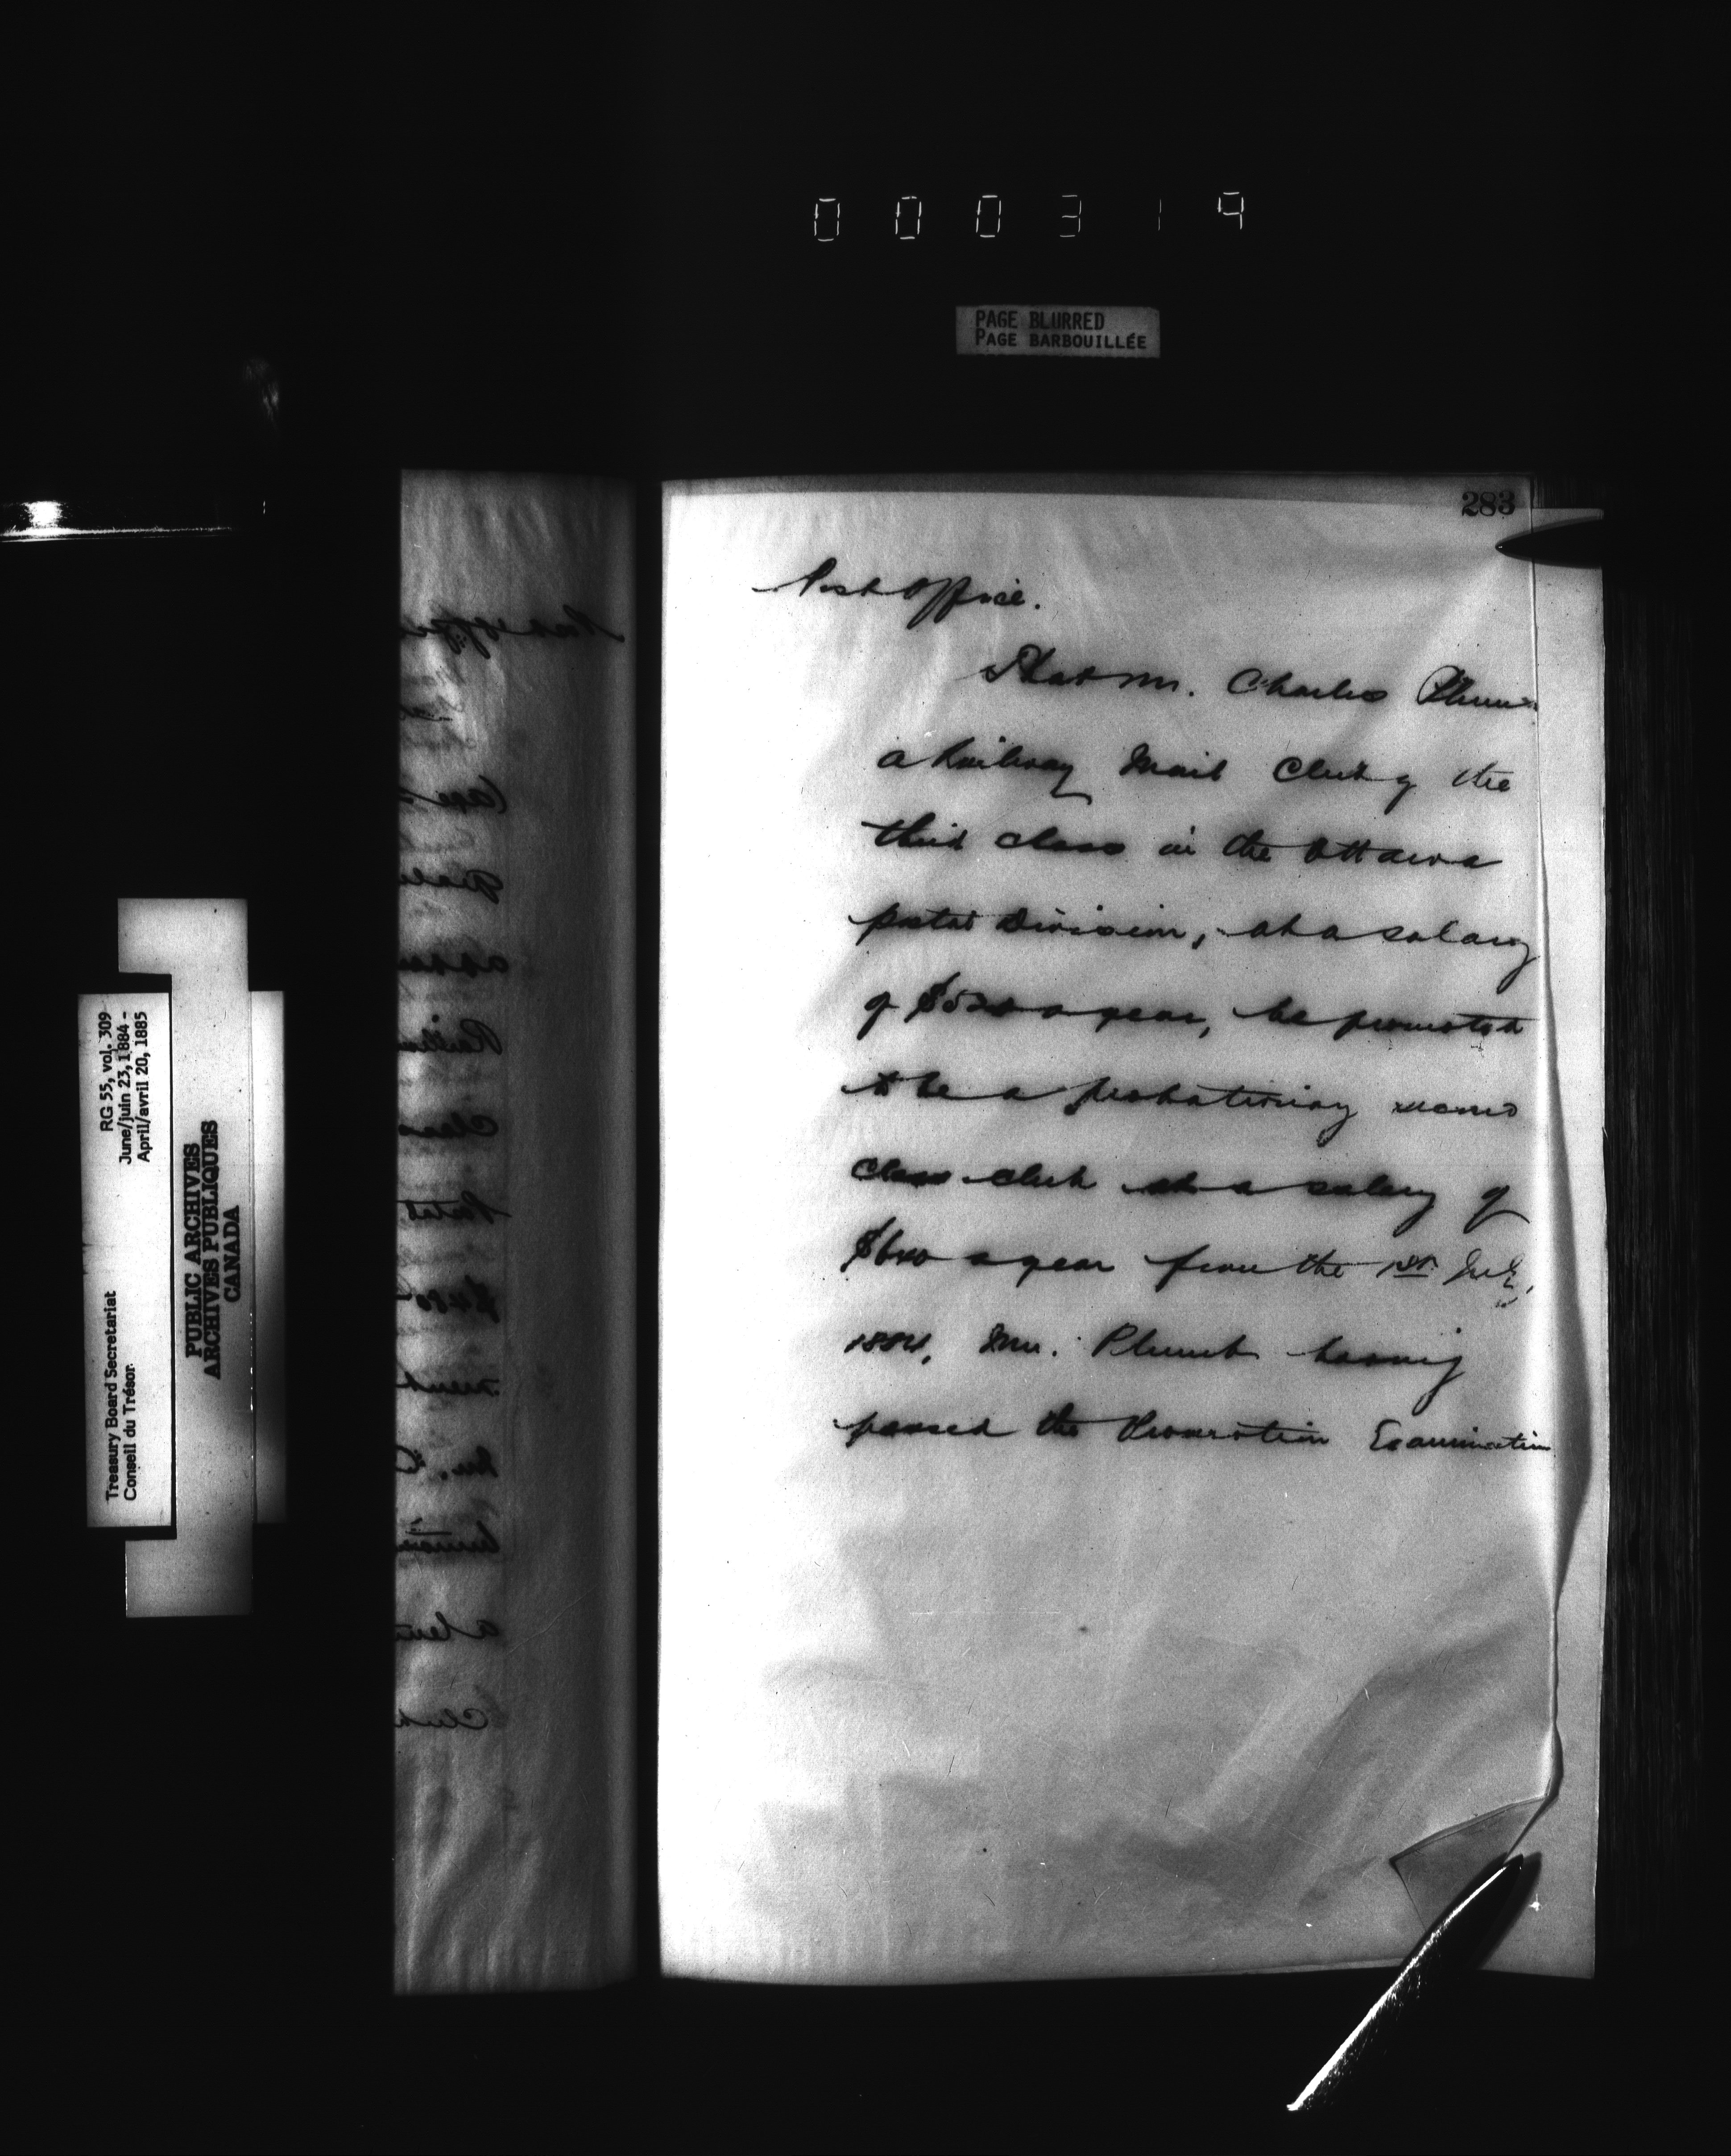 000319
PAGE BLURRED
PAGE BARBOUILLÉE
283
Post Office.
That Mr. Charles Plumb
a Railway Mail Clerk of the
third class in the Ottawa
postal Division, at a salary
of $520 a year, be promoted
to be a probationary second
Class clerk at a salary of
$600 a year from the 1st July,
1884, Mr. Plumb having
passed the Promotion Examination
Treasury Board Secretariat RG 55, vol. 309
Conseil du Trésor June/juin 23, 1884 -
April/avril 20, 1885
PUBLIC ARCHIVES
ARCHIVES PUBLIQUES
CANADA